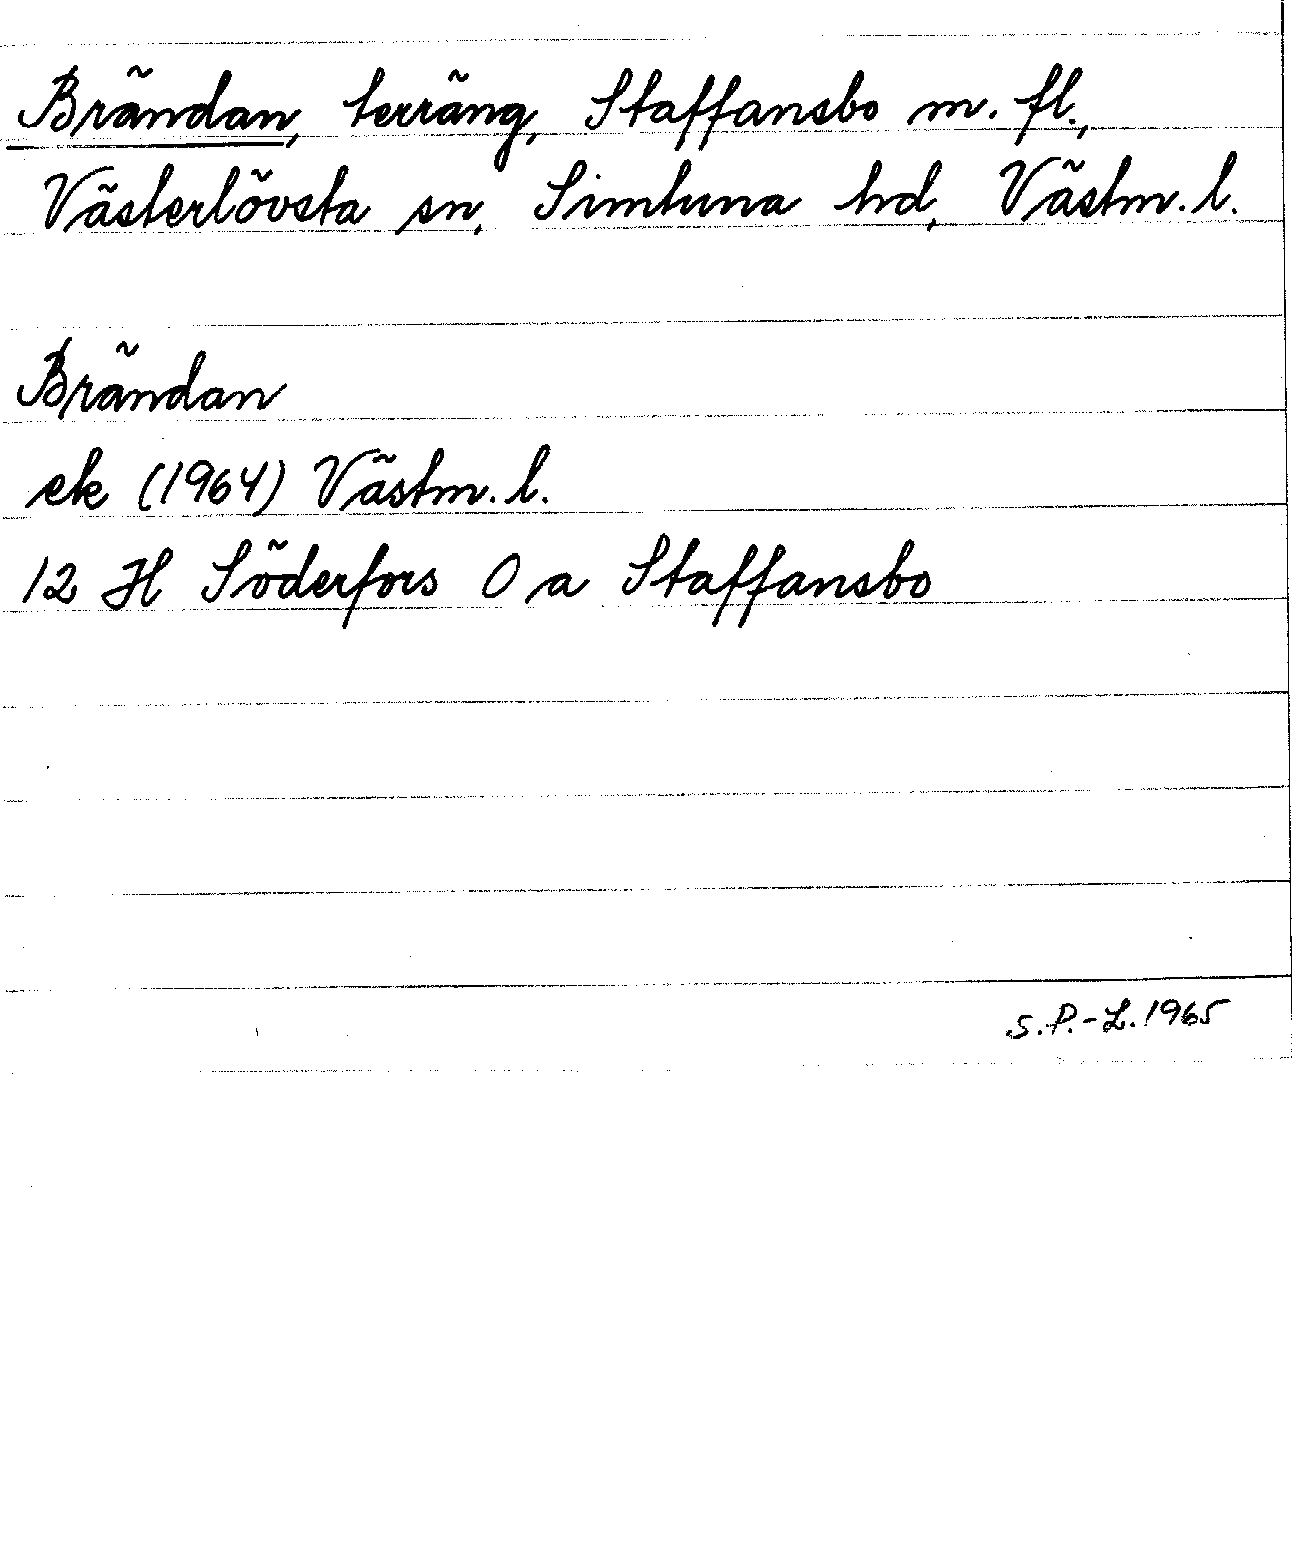 Brändan, terräng, Staffansbo m. fl.,
Västerlövsta sn, Simtuna hd, Västm. l.
Brändan
ek (1964) Västm. l.
12 H Söderfors 0 a Staffansbo
S.P.-L. 1965